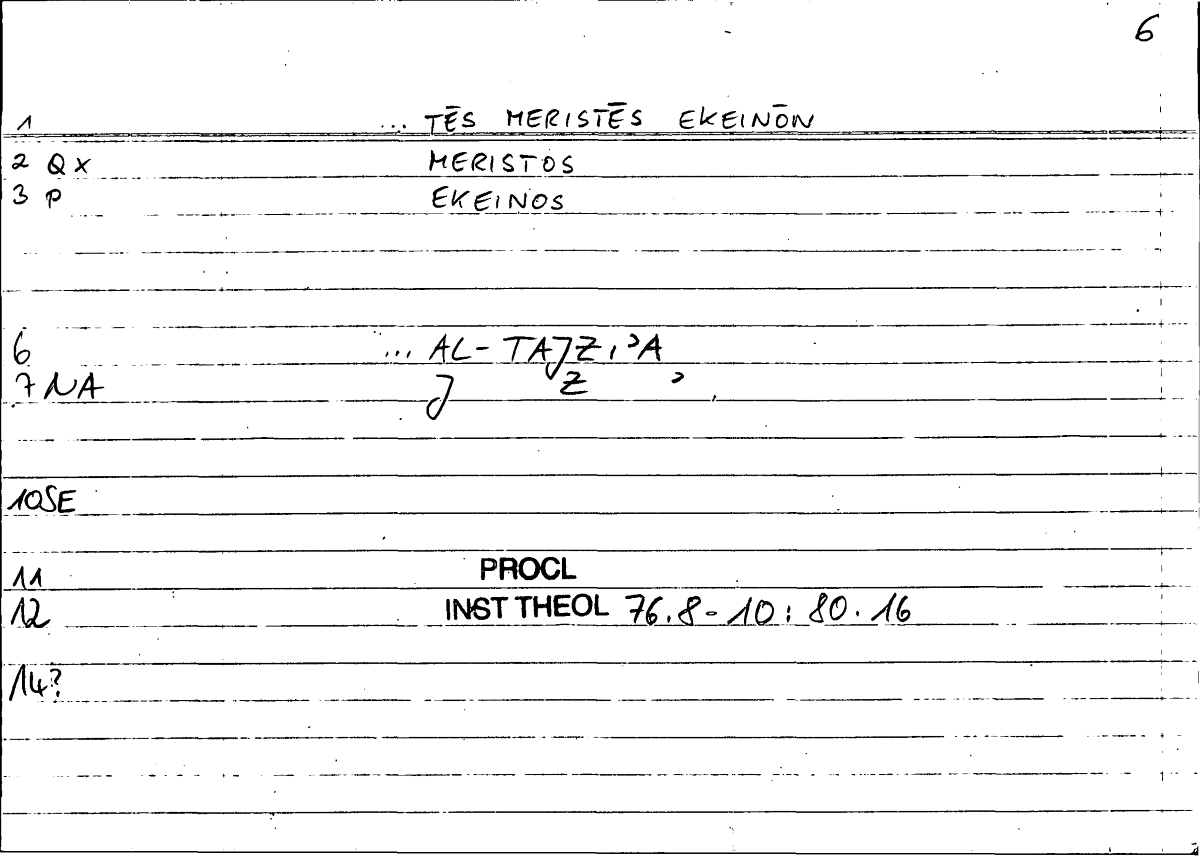 6
1 ... TĒS MERISTĒS EKEINŌN
2 QX MERISTOS
3 P EKEINOS
6 ... AL-TAJZIʾA
7 NA J Z ʾ
10SE
11 PROCL
12 INST THEOL 76.8-10:80.16
14?